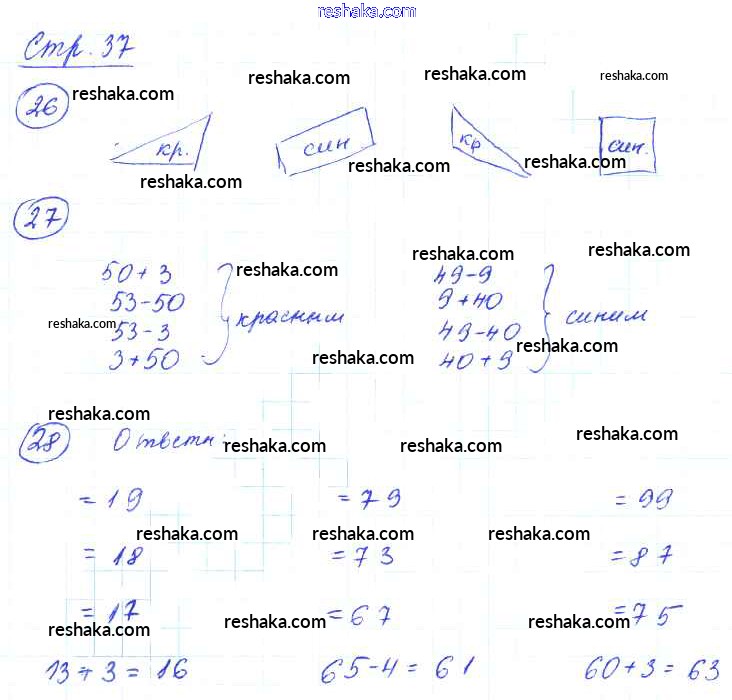 reshaka.com
Стр. 37
reshaka.com reshaka.com reshaka.com reshaka.com
26
кр. син кр син.
reshaka.com reshaka.com reshaka.com
27
reshaka.com reshaka.com reshaka.com
50+3 49-9
53-50 9+40
reshaka.com 53-3 красным 49-40 синим
3+50 reshaka.com 40+9 reshaka.com
reshaka.com
28 Ответы: reshaka.com reshaka.com reshaka.com
=19 =79 =99
reshaka.com reshaka.com reshaka.com
=18 =73 =87
=17 =67 =75
reshaka.com reshaka.com reshaka.com
13+3=16 65-4=61 60+3=63